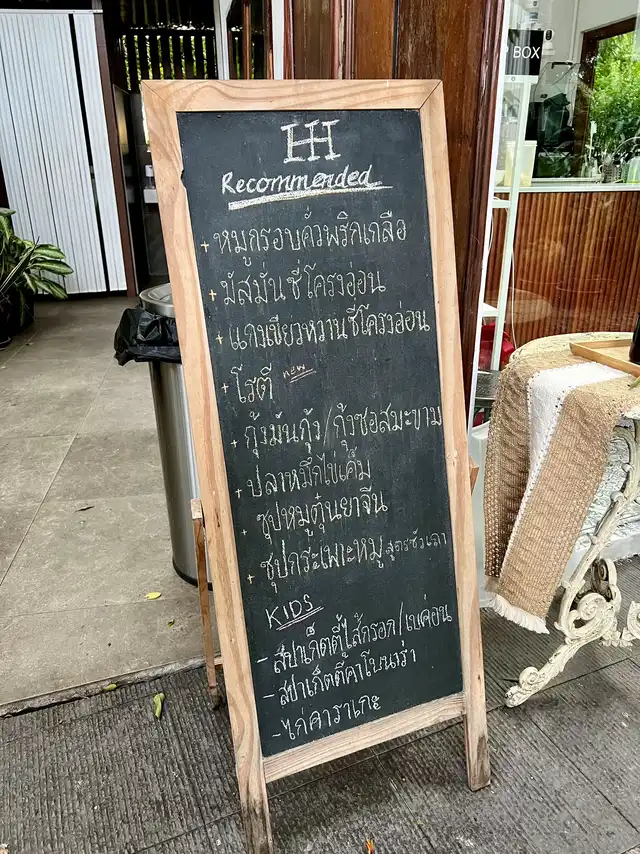 BOX
HH
Recommended
+ หมูกรอบคั่วพริกเกลือ
+ มัสมั่นซี่โครงอ่อน
+ แกงเขียวหวานซี่โครงอ่อน
+ โรตี new
+ กุ้งมันกุ้ง/กุ้งซอสมะขาม
+ ปลาหมึกไข่เค็ม
+ ซุปหมูตุ๋นยาจีน
+ ซุปกระเพาะหมู สูตรซัวเถา
KIDS
- สปาเก็ตตี้ไส้กรอก/เบค่อน
- สปาเก็ตตี้คาโบนาร่า
- ไก่คาราเกะ